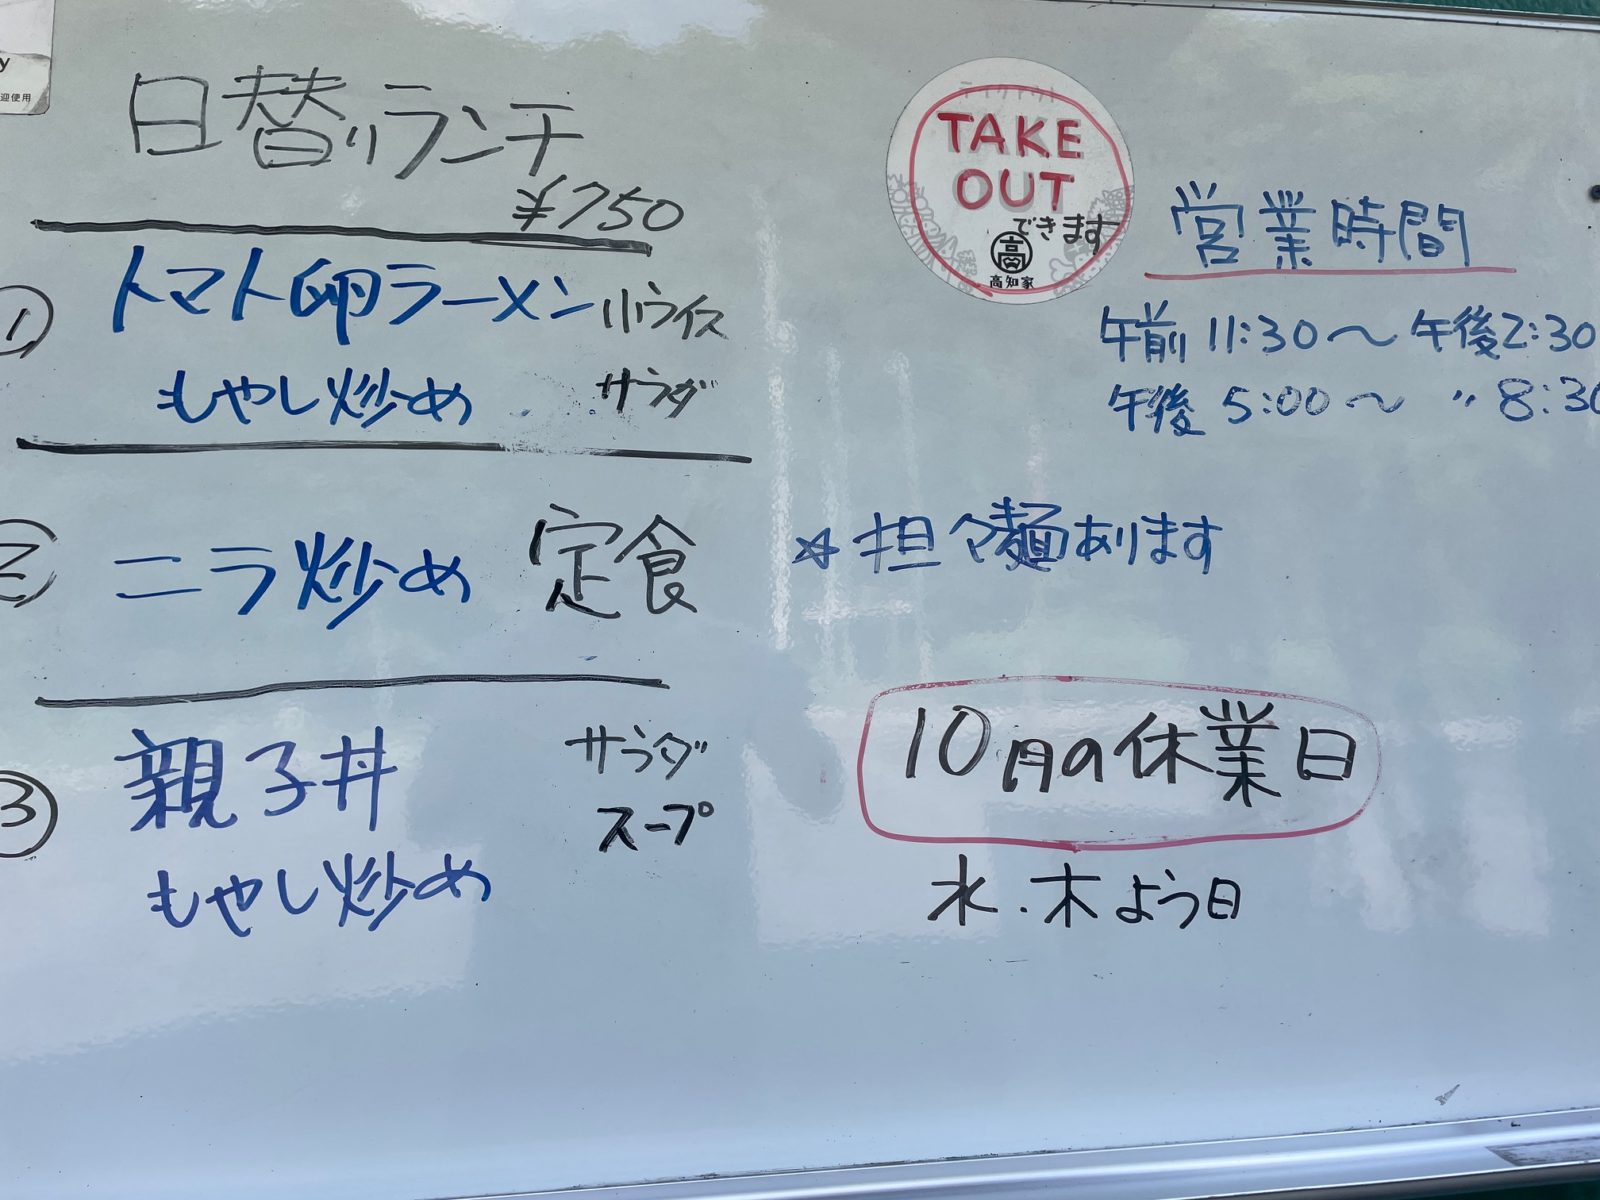 日替りランチ
¥750
① トマト卵ラーメン 小ライス
もやし炒め サラダ
② ニラ炒め 定食
③ 親子丼 サラダ
スープ
もやし炒め
テイクアウト
TAKE
OUT
できます
高
高知家
営業時間
午前 11:30〜午後2:30
午後 5:00〜 〃 8:30
☆担々麺あります
10月の休業日
水・木よう日
y
迎使用